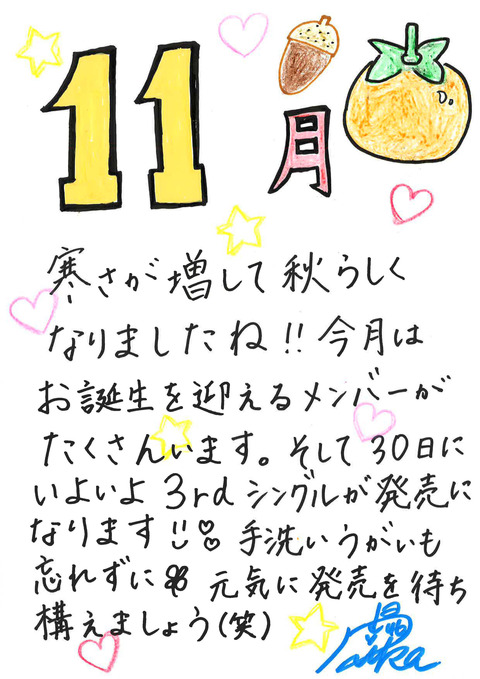 11月
寒さが増して秋らしく
なりましたね!!今月は
お誕生を迎えるメンバーが
たくさんいます。そして30日に
いよいよ3rdシングルが発売に
なります!! 手洗いうがいも
忘れずに 元気に発売を待ち
構えましょう(笑)